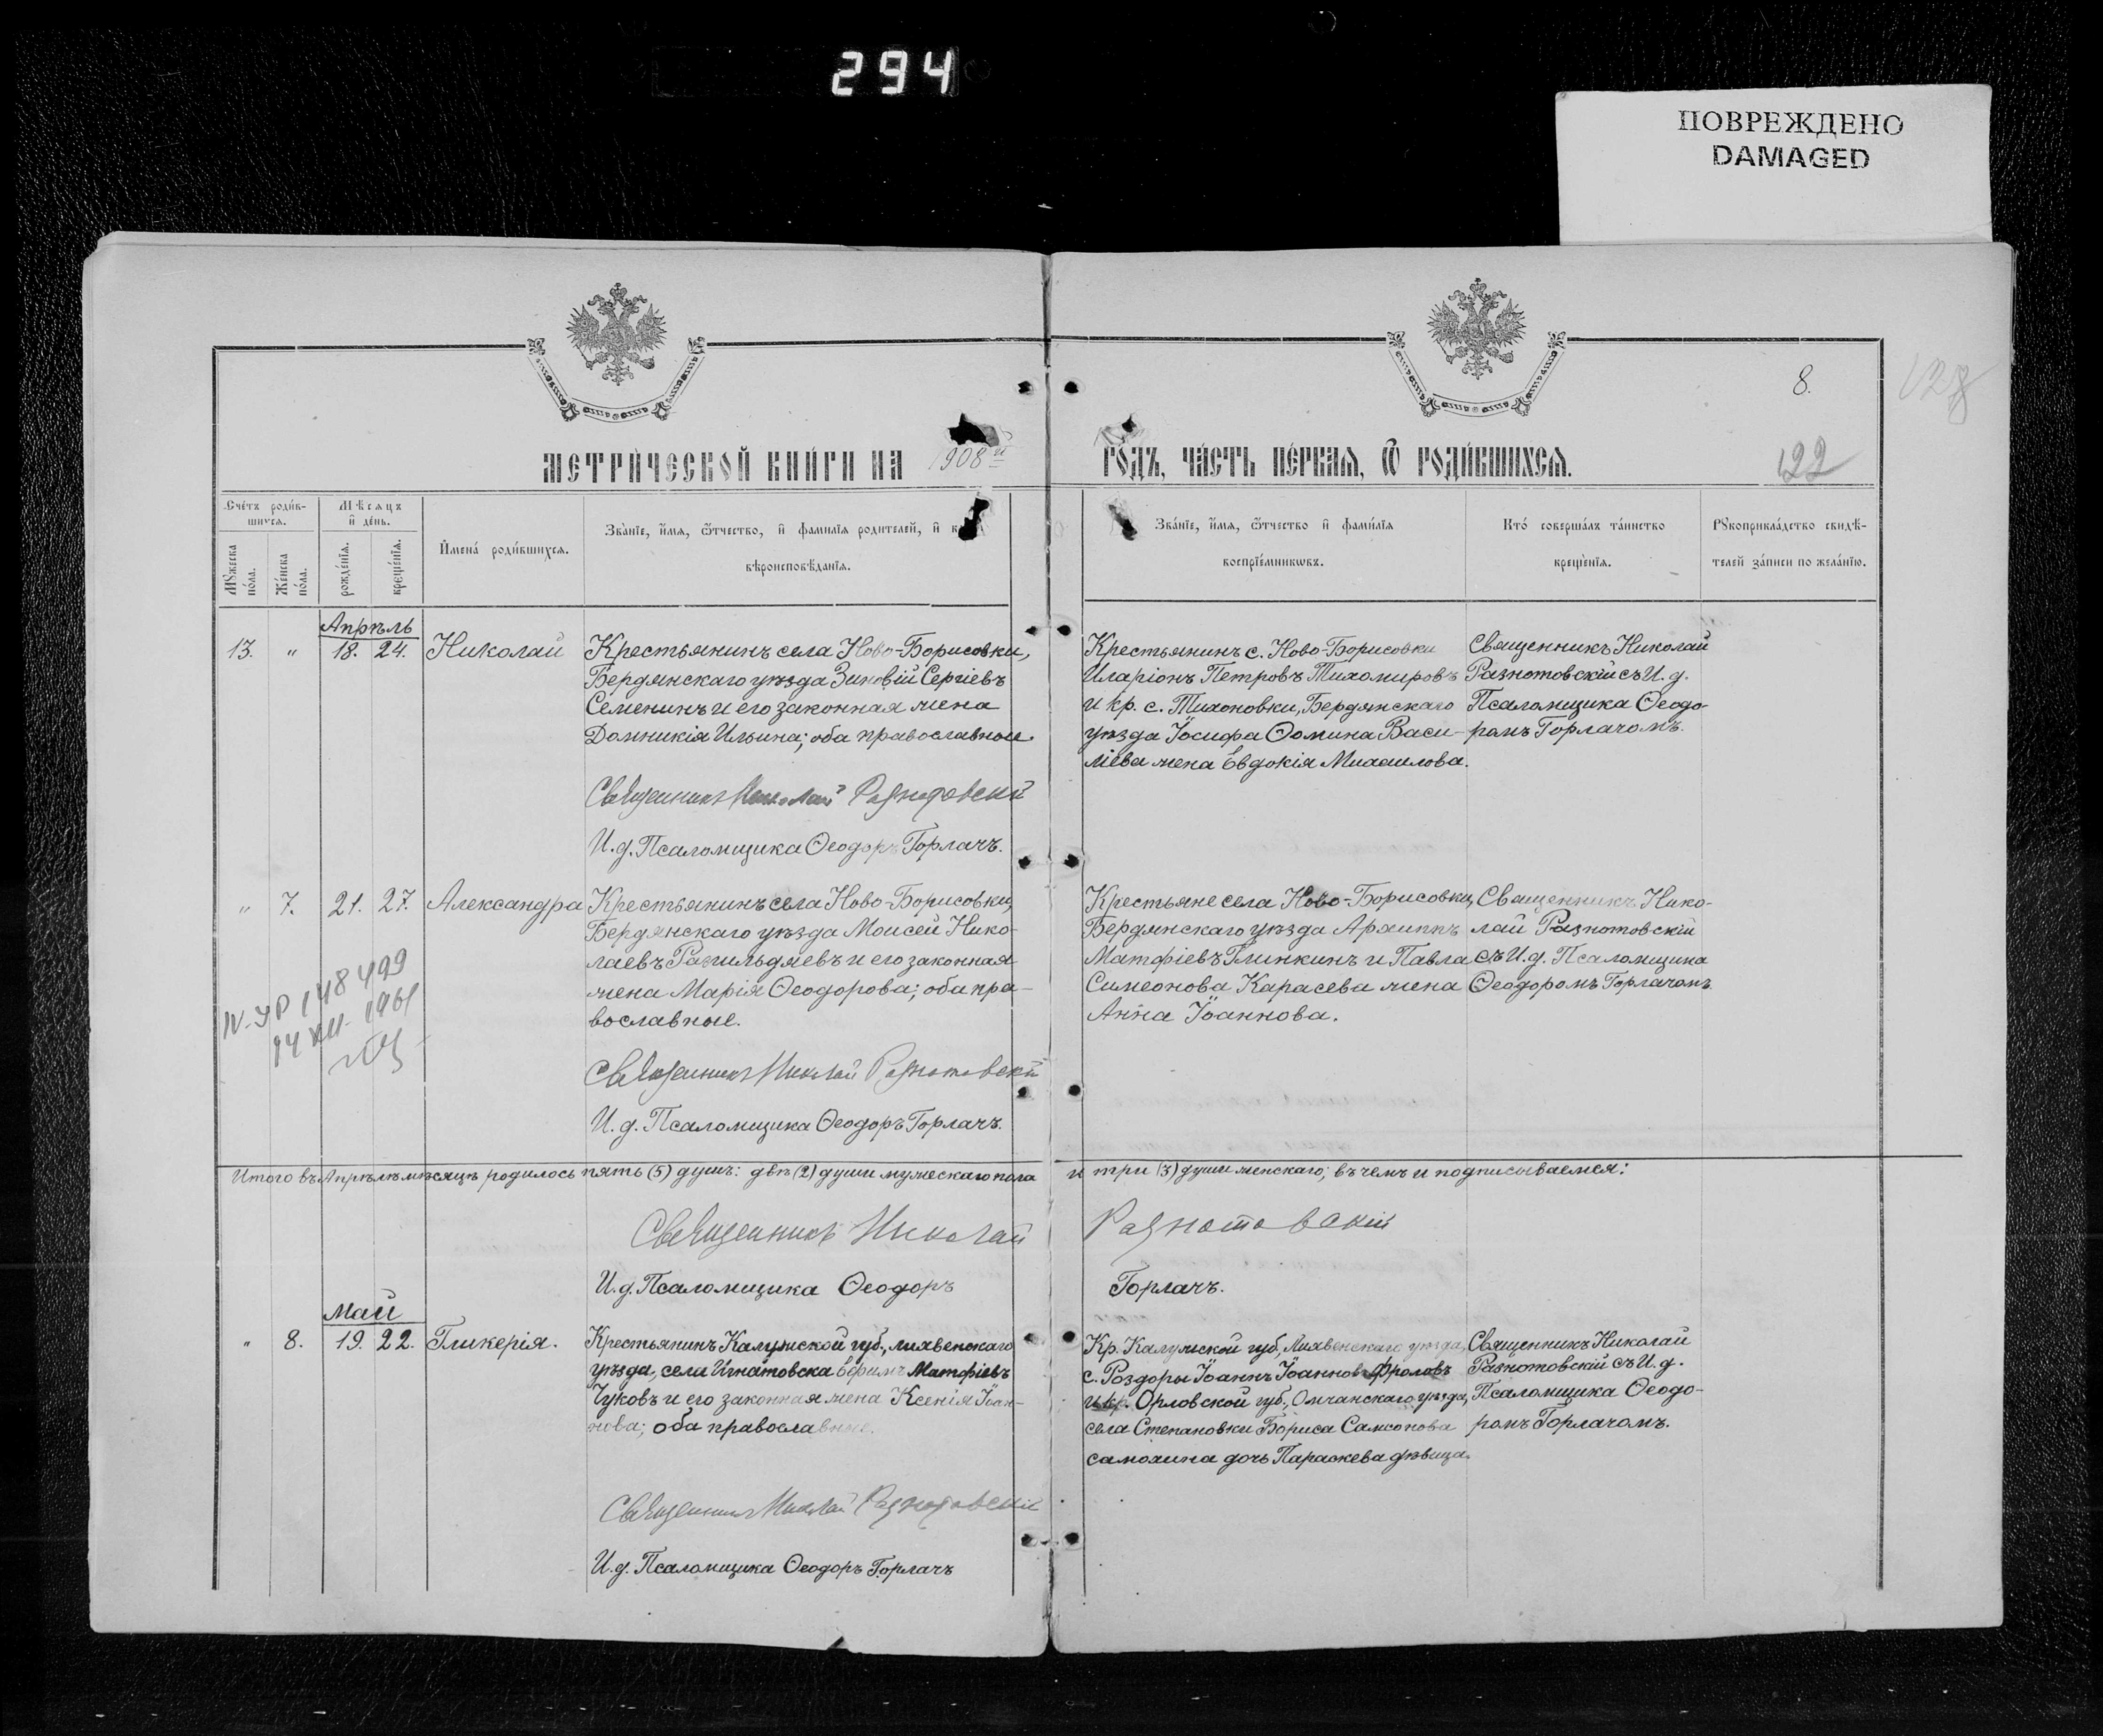 294
ПОВРЕЖДЕНО
DAMAGED
8.
МЕТРИ́ЧЕСКОЙ КНИ́ГИ НА 1908й
ГО́ДЪ, ЧА́СТЬ ПЕ́РВАЯ, Ѿ РОДИ́ВШИХСЯ.
122
Счётъ роди́в-
шихся.
Мѣсяцъ
и де́нь.
Имена́ роди́вшихся.
Зва́нїе, и́мя, ѻ́тчество, и фамилїя родителей, и к
вѣроисповѣ́данїя.
Мꙋжеска
по́ла.
Же́нска
по́ла.
рожде́нїя.
креще́нїя.
Зва́нїе, и́мя, ѻ́тчество и фами́лїя
воспрїе́мниковъ.
Кто́ соверша́лъ та́инство
креще́нїя.
Рꙋкоприкла́дство свидѣ́-
телей за́писи по жела́нїю.
Апрѣль
13. " 18. 24. Николай
Крестьянинъ села Ново-Борисовки,
Бердянскаго уѣзда Зиновій Сергіевъ
Семенинъ и его законная жена
Домникія Ильина; оба православные.
Священникъ Николай Разнотовскій
И.д. Псаломщика Ѳеодоръ Горлачъ.
Крестьянинъ с. Ново-Борисовки
Иларіонъ Петровъ Тихомировъ
и кр. с. Тихоновки, Бердянскаго
уѣзда Іосифа Ѳомина Васи-
ліева жена Евдокія Михаилова.
Священникъ Николай
Разнотовскій съ И.д.
Псаломщика Ѳеодо-
ромъ Горлачомъ.
" 7. 21. 27. Александра
Крестьянинъ села Ново-Борисовки,
Бердянскаго уѣзда Моисей Нико-
лаевъ Разгильдяевъ и его законная
жена Марія Ѳеодорова; оба пра-
вославные.
Священникъ Николай Разнотовскій
И.д. Псаломщика Ѳеодоръ Горлачъ.
Крестьяне села Ново-Борисовки,
Бердянскаго уѣзда Архиппъ
Матфіевъ Глинкинъ и Павла
Симеонова Карасева жена
Анна Іоаннова.
Священникъ Нико-
лай Разнотовскій
съ И.д. Псаломщика
Ѳеодоромъ Горлачомъ.
IV-УР 148499
14 XII 1961
Итого въ Апрѣлѣ мѣсяцѣ родилось пять (5) душъ: двѣ (2) души мужескаго пола
и три (3) души женскаго; въ чемъ и подписываемся:
Священникъ Николай
Разнотовскій
И.д. Псаломщика Ѳеодоръ
Горлачъ.
Май
" 8. 19. 22. Гликерія.
Крестьянинъ Калужской губ., лихвенскаго
уѣзда, села Игнатовска Ефимъ Матфіевъ
Чуковъ и его законная жена Ксенія Іоан-
нова; оба православные.
Священникъ Николай Разнотовскій
И.д. Псаломщика Ѳеодоръ Горлачъ
Кр. Калужской губ., Лихвенскаго уѣзда,
с. Роздоры Іоаннъ Іоанновъ Фроловъ
и кр. Орловской губ., Омчанскаго уѣзда,
села Степановки Бориса Самсонова
самохина дочь Параскева дѣвица.
Священникъ Николай
Разнотовскій съ И.д.
Псаломщика Ѳеодо-
ромъ Горлачомъ.